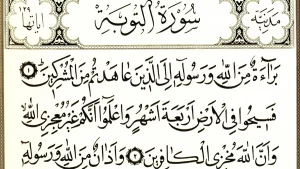 مدنية
سورة التوبة
آياتها ١٢٩
بَرَاءَةٌ مِنَ اللَّهِ وَرَسُولِهِ إِلَى الَّذِينَ عَاهَدْتُمْ مِنَ الْمُشْرِكِينَ ١
فَسِيحُوا فِي الْأَرْضِ أَرْبَعَةَ أَشْهُرٍ وَاعْلَمُوا أَنَّكُمْ غَيْرُ مُعْجِزِي اللَّهِ
وَأَنَّ اللَّهَ مُخْزِي الْكَافِرِينَ ٢ وَأَذَانٌ مِنَ اللَّهِ وَرَسُولِهِ